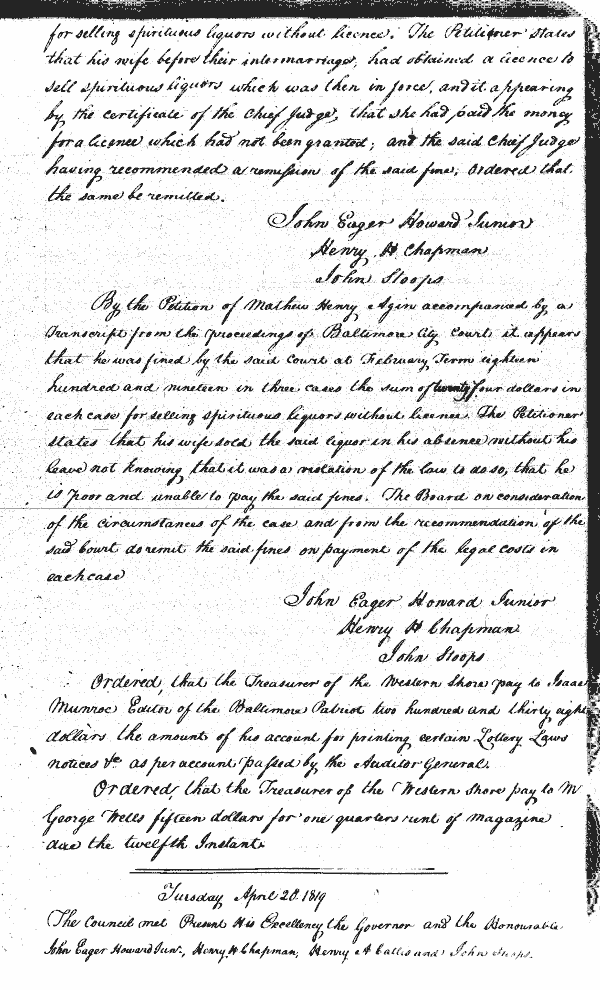 for selling spirituous liquors without licence. The Petitioner states
that his wife before their intermarriage, had obtained a licence to
sell spirituous liquors which was then in force, and it appearing
by the certificate of the Chief Judge, that she had paid the money
for a licence which had not been granted; and the said Chief Judge
having recommended a remission of the said fine; Ordered that
the same be remitted.
John Eager Howard Junior
Henry H Chapman
John Stoops
By the Petition of Mathew Henry Agin accompanied by a
Transcript from the proceedings of Baltimore City Court it appears
that he was fined by the said Court at February Term eighteen
hundred and nineteen in three cases the sum of twenty four dollars in
each case for selling spirituous liquors without licence. The Petitioner
states that his wife sold the said liquor in his absence without his
leave not knowing that it was a violation of the law to do so, that he
is poor and unable to pay the said fines. The Board on consideration
of the circumstances of the case and from the recommendation of the
said Court do remit the said fines on payment of the legal costs in
each case
John Eager Howard Junior
Henry H Chapman
John Stoops
Ordered, that the Treasurer of the Western Shore pay to Isaac
Munroe Editor of the Baltimore Patriot two hundred and thirty eight
dollars the amount of his account for printing certain Lottery Laws
notices &c as per account passed by the Auditor General.
Ordered, that the Treasurer of the Western Shore pay to M
George Wells fifteen dollars for one quarters rent of Magazine
due the twelfth Instant.
Tuesday April 20. 1819
The Council met Present His Excellency the Governor and the Honourable
John Eager Howard Junr., Henry H Chapman, Henry A Callis and John Stoops.